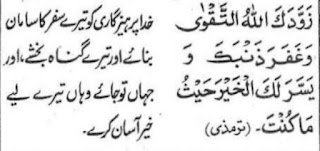 زَوَّدَكَ اللهُ التَّقْوٰى
وَغَفَرَ ذَنْبَكَ وَ
يَسَّرَ لَكَ الْخَيْرَ حَيْثُ
مَا كُنْتَ۔ (ترمذی)
خدا پرہیزگاری کو تیرے سفر کا سامان
بنائے اور تیرے گناہ بخشے، اور
جہاں تو جائے وہاں تیرے لیے
خیر آسان کرے۔